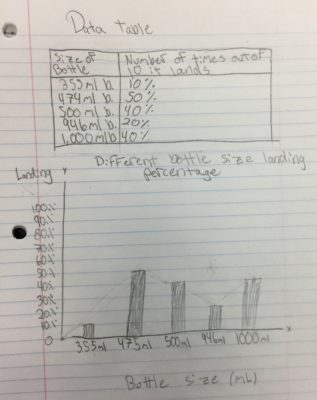 Data table
Size of Bottle
Number of times out of 10 it lands
355 ml b. 10%
474 ml b. 50%
500 ml b. 40%
946 ml b. 20%
1,000 ml b. 40%
Different bottle size landing percentage
Landing
Y
100%
90%
80%
70%
60%
50%
40%
30%
20%
10%
0
x
355ml 475ml 500ml 946ml 1000ml
Bottle size (mb)